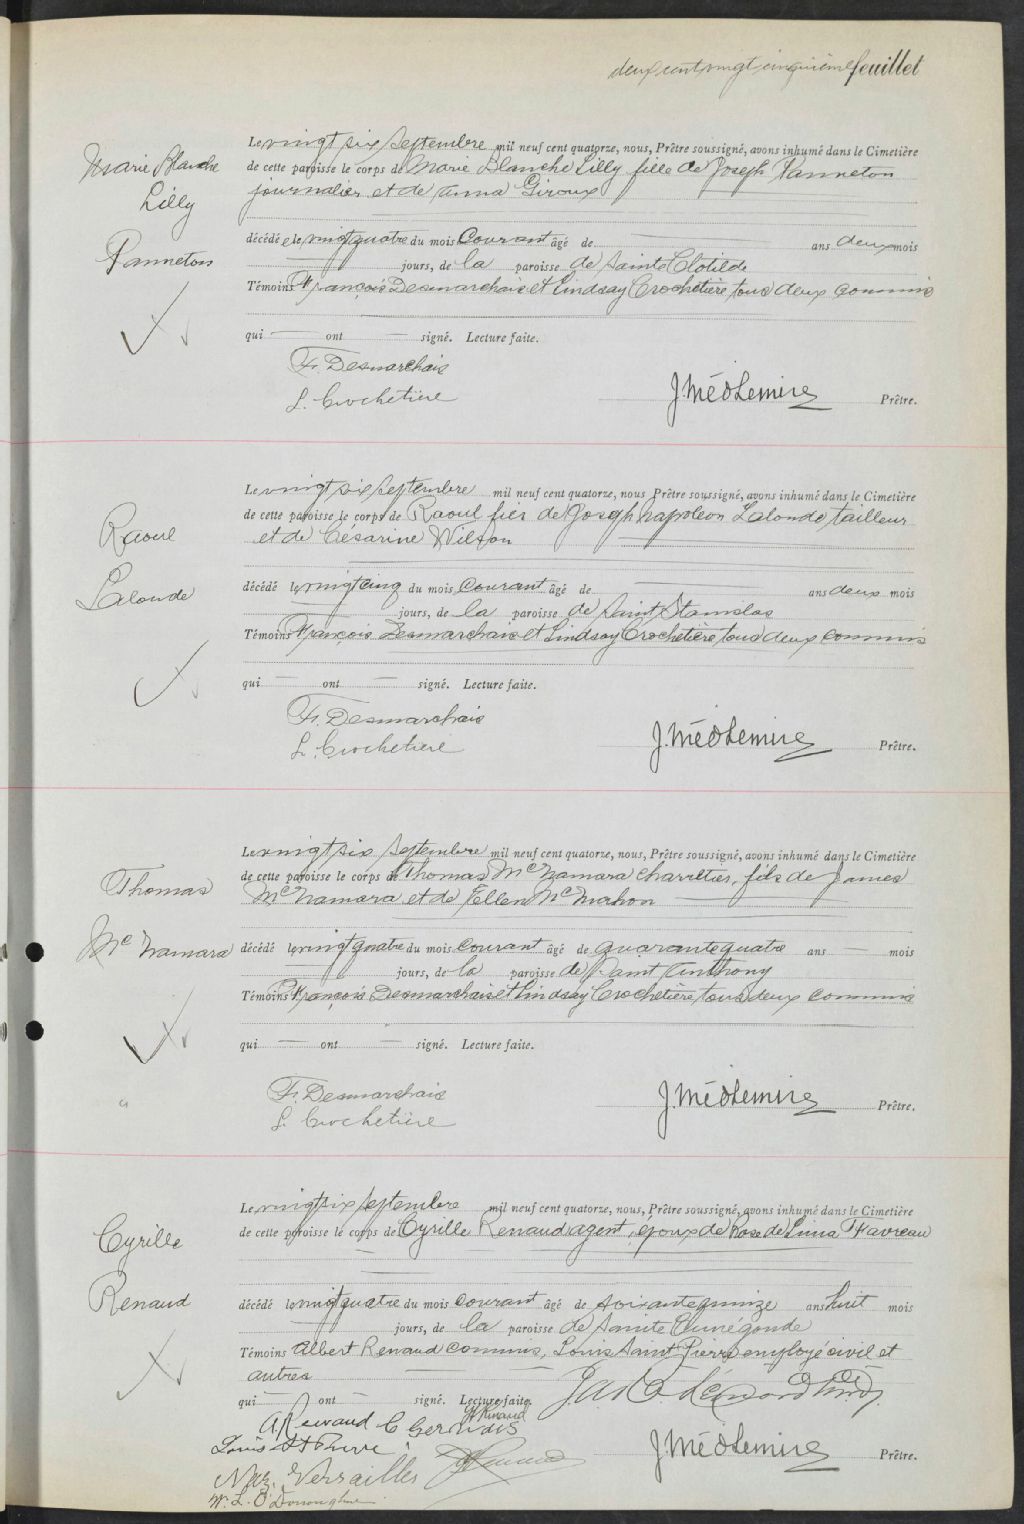 deux cent vingt cinquième feuillet
Marie Blanche
Lilly
Panneton
Le vingt six Septembre mil neuf cent quatorze, nous, Prêtre soussigné, avons inhumé dans le Cimetière
de cette paroisse le corps de Marie Blanche Lilly fille de Joseph Panneton
journalier et de Anna Giroux
décédé e le vingt quatre du mois Courant âgé de ans deux mois
jours, de la paroisse de Sainte Clotilde
Témoins François Desmarchais et Lindsay Crochetière tous deux commis
qui ont signé. Lecture faite.
Fr. Desmarchais
L. Crochetière
J. Méd Lemire Prêtre.
Raoul
Lalonde
Le vingt six Septembre mil neuf cent quatorze, nous Prêtre soussigné, avons inhumé dans le Cimetière
de cette paroisse le corps de Raoul fils de Joseph Napoleon Lalonde, tailleur
et de Césarine Wilson
décédé le vingt cinq du mois Courant âgé de ans deux mois
jours, de la paroisse de Saint Stanislas
Témoins François Desmarchais et Lindsay Crochetière tous deux commis
qui ont signé. Lecture faite.
Fr. Desmarchais
L. Crochetière
J. Méd Lemire Prêtre.
Thomas
Mc Namara
Le vingt six Septembre mil neuf cent quatorze, nous, Prêtre soussigné, avons inhumé dans le Cimetière
de cette paroisse le corps de Thomas Mc Namara charretier, fils de James
Mc Namara et de Ellen Mc Mahon
décédé le vingt quatre du mois courant âgé de quarante quatre ans mois
jours, de la paroisse de Saint Anthony
Témoins François Desmarchais et Lindsay Crochetière tous deux commis
qui ont signé. Lecture faite.
Fr. Desmarchais
L. Crochetière
J. Méd Lemire Prêtre.
Cyrille
Renaud
Le vingt six Septembre mil neuf cent quatorze, nous, Prêtre soussigné, avons inhumé dans le Cimetière
de cette paroisse le corps de Cyrille Renaud agent, époux de Rose de Lima Favreau
décédé le vingt quatre du mois courant âgé de soixante quinze ans huit mois
jours, de la paroisse de Sainte Cunégonde
Témoins Albert Renaud commis, Louis Saint Pierre employé civil et
autres
qui ont signé. Lecture faite.
A. Renaud C Gervais
Louis St Pierre
J. Méd Lemire Prêtre.
Naz. Versailles
W. L. O'Donoughue